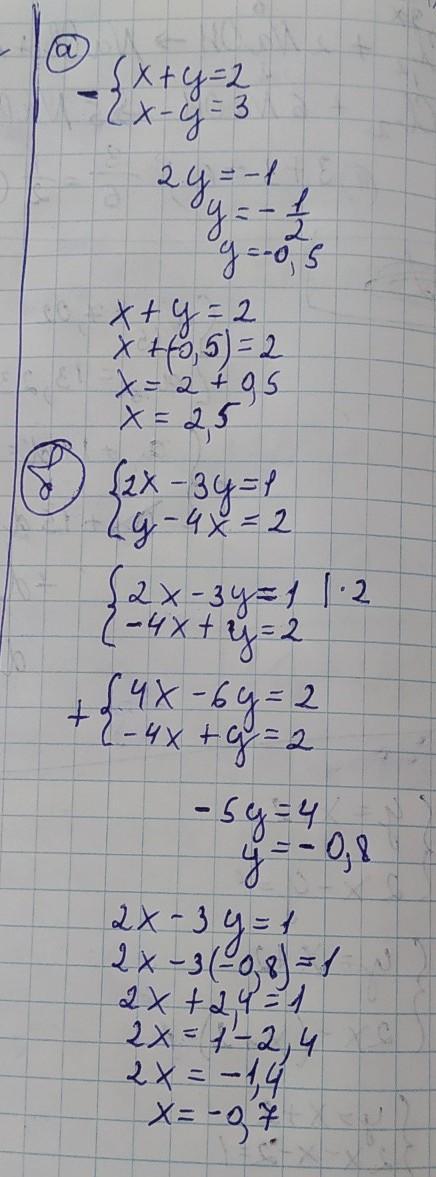 а
- { x + y = 2
x - y = 3
2y = -1
y = - 1/2
y = -0,5
x + y = 2
x + (-0,5) = 2
x = 2 + 0,5
x = 2,5
б
{ 2x - 3y = 1
y - 4x = 2
{ 2x - 3y = 1 | · 2
-4x + y = 2
+ { 4x - 6y = 2
-4x + y = 2
-5y = 4
y = -0,8
2x - 3y = 1
2x - 3(-0,8) = 1
2x + 2,4 = 1
2x = 1 - 2,4
2x = -1,4
x = -0,7